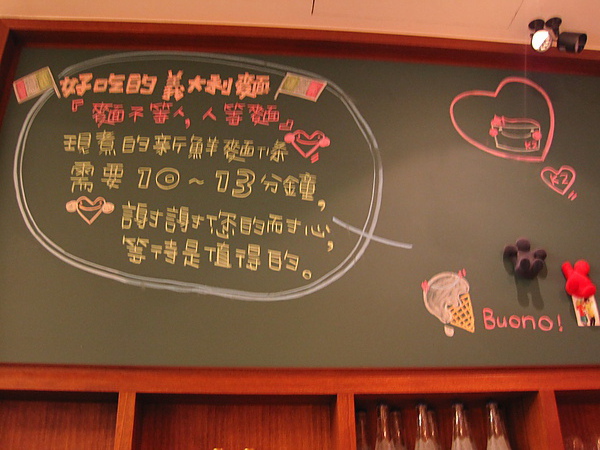 好吃的義大利麵
『麵不等人,人等麵』
現煮的新鮮麵條
需要10~13分鐘,
謝謝您的耐心,
等待是值得的。
K2
K2
Buono!